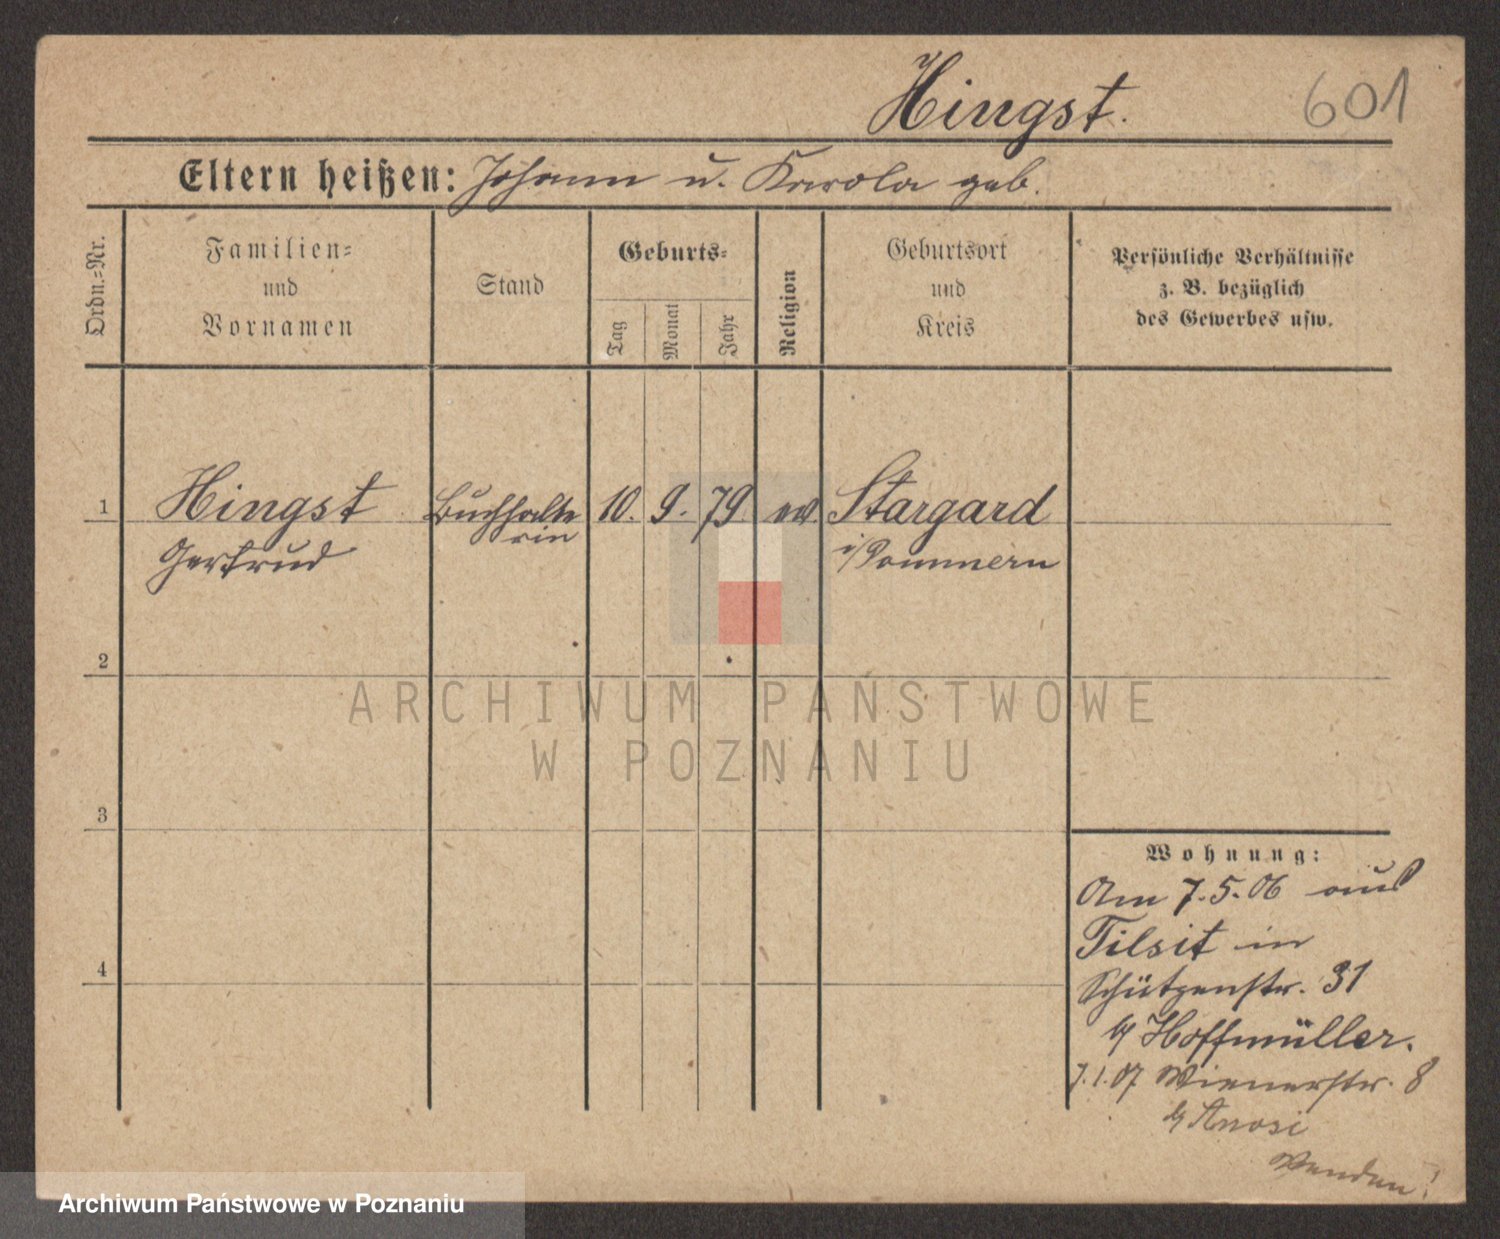 Hingst.
601
Eltern heißen: Johann u. Karola geb.
Ordn.=Nr.
Familien=
und
Vornamen
Stand
Geburts=
Tag
Monat
Jahr
Religion
Geburtsort
und
Kreis
Persönliche Verhältnisse
z. B. bezüglich
des Gewerbes usw.
1
Hingst
Gertrud
Buchhalte
rin
10. 9. 79
ev.
Stargard
i/Pommern
2
3
4
Wohnung:
Am 7.5.06 aus
Tilsit in
Schützenstr. 31
b/ Hoffmüller.
7.1.07 Wienerstr. 8
b/
Wenden!
ARCHIWUM PAŃSTWOWE
W POZNANIU
Archiwum Państwowe w Poznaniu